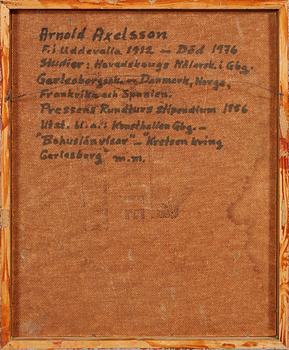 Arnold Axelsson
F. i Uddevalla 1912 — Död 1976
Studier: Hovedskougs Målarsk. i Gbg.
Gerlesborgssk. — Danmark, Norge,
Frankrike och Spanien.
Pressens Rundturs stipendium 1956
Utst. bl. a. i Konsthallen Gbg. —
"Bohuslän visar" — "Kretsen kring
Gerlesborg" m.m.